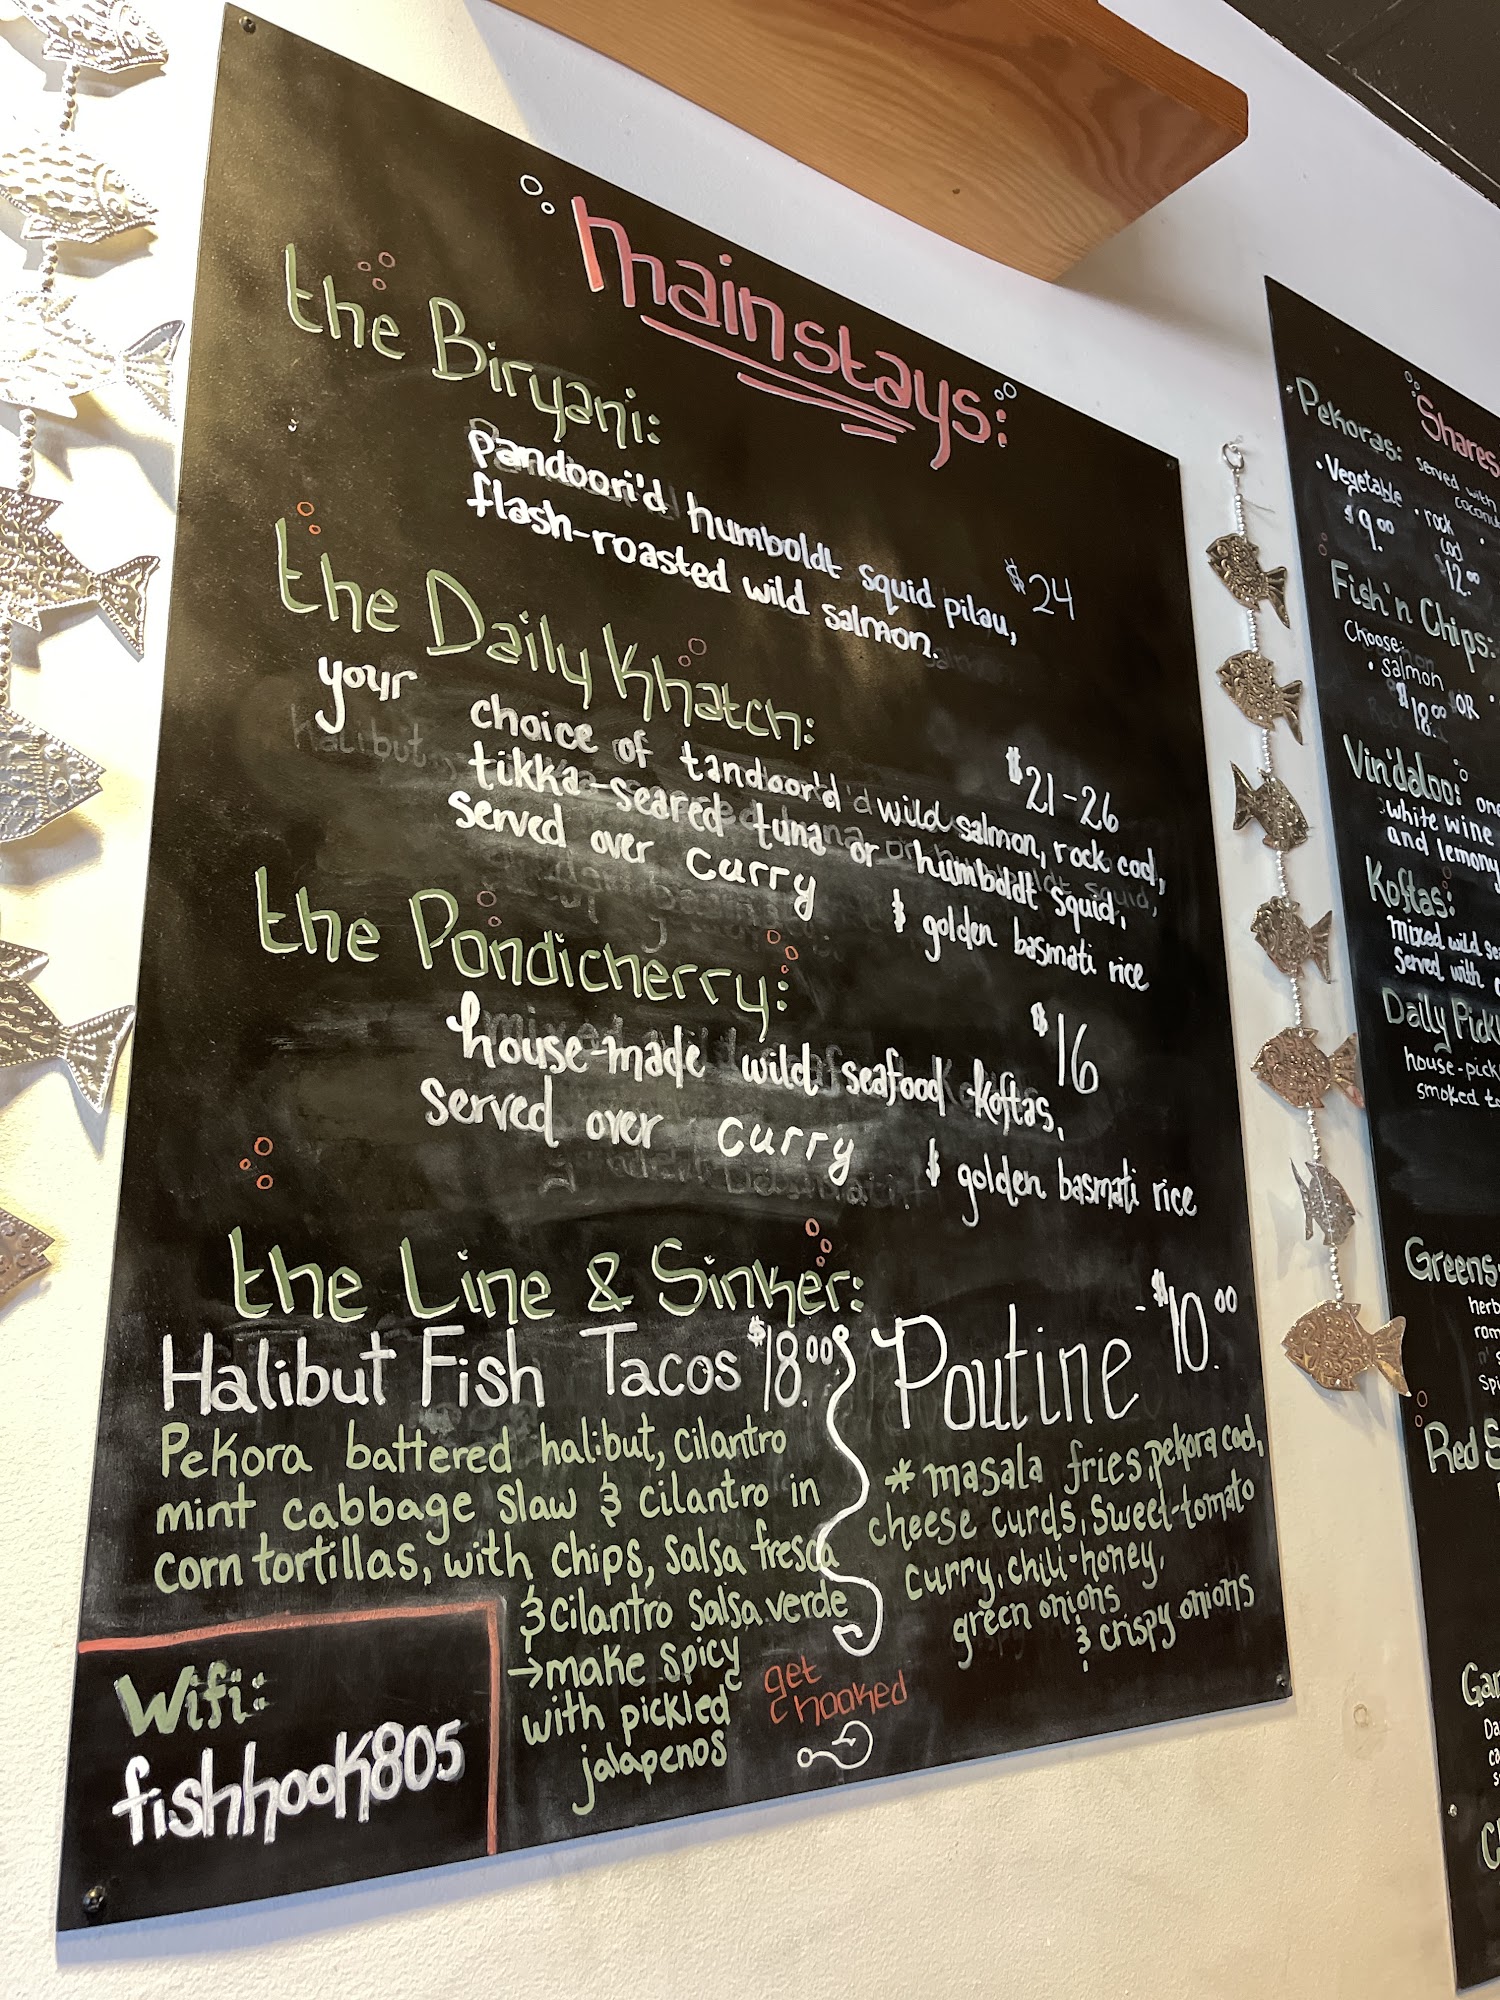 mainstays:
the Biryani:
pandoori'd humboldt squid pilau,
flash-roasted wild salmon.
$24
the Daily Khatch:
your choice of tandoor'd wild salmon, rock cod,
tikka-seared tuna or humboldt squid,
served over curry & golden basmati rice
$21-26
the Pondicherry:
house-made wild seafood koftas,
served over curry & golden basmati rice
$16
the Line & Sinker:
Halibut Fish Tacos $18.00
Pekora battered halibut, cilantro
mint cabbage slaw & cilantro in
corn tortillas, with chips, salsa fresca
& cilantro salsa verde
→make spicy
with pickled
jalapenos
Poutine - $10.00
*masala fries, pekora cod,
cheese curds, sweet-tomato
curry, chili-honey,
green onions
& crispy onions
get
hooked
Wifi:
fishhook805
Shares
Pekoras: served with
• Vegetable • rock
$9.00 cod
$12.00
Fish'n Chips:
Choose:
• salmon OR
$18.00
Vin'daloo: one
white wine
and lemony
Koftas:
mixed wild
served with
Daily
house-
smoked
Greens
herb
Red